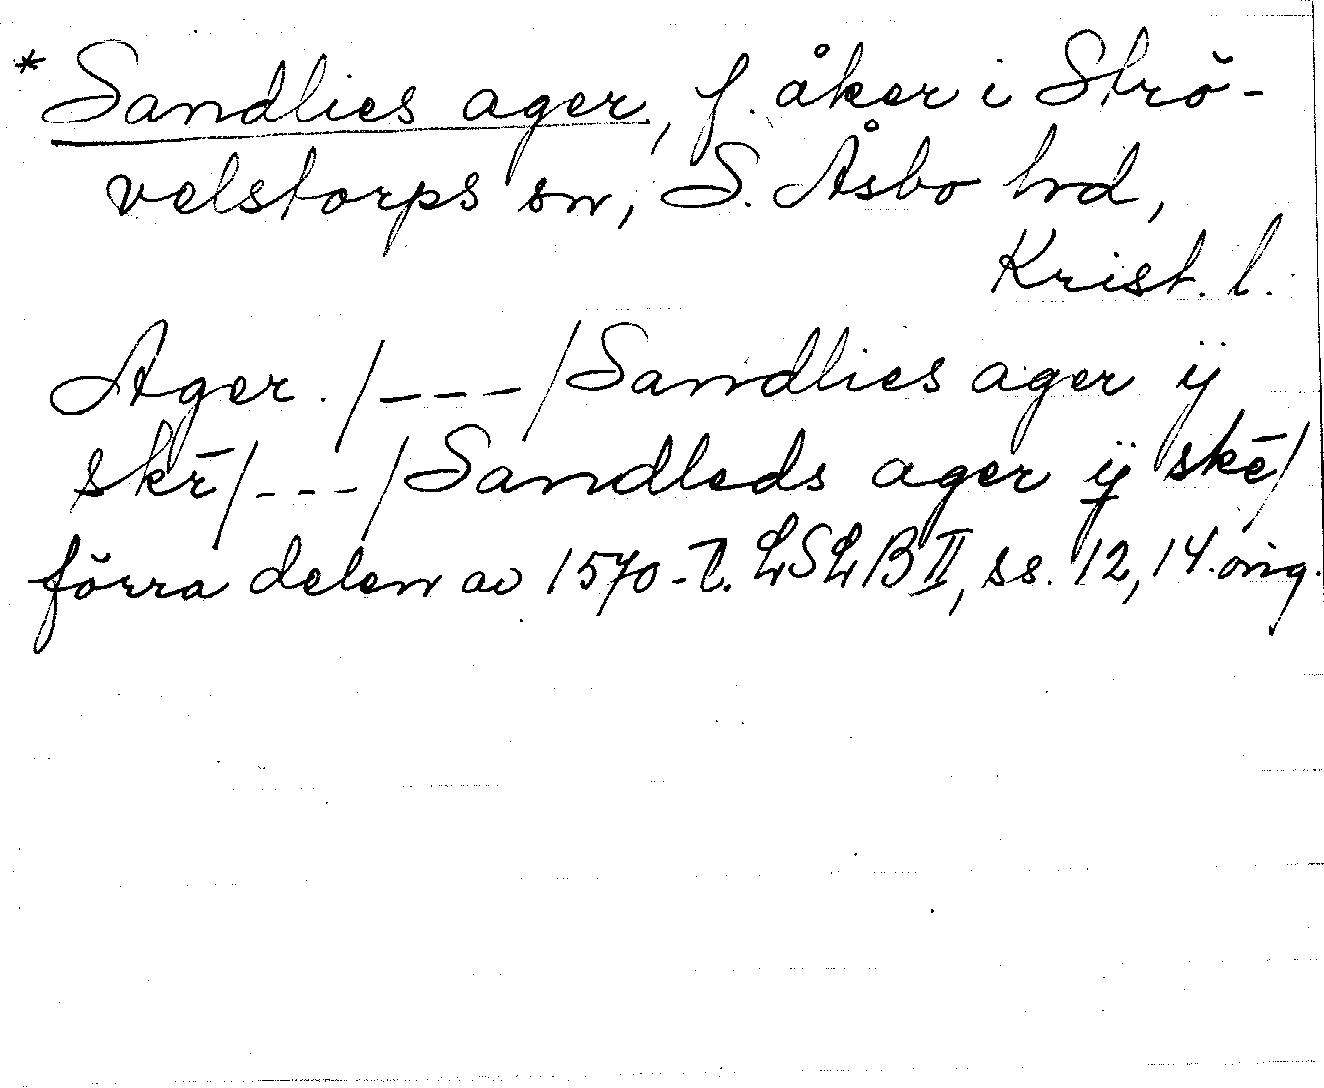 * Sandlies ager, f. åker i Strö-
velstorps sn, S. Åsbo hd,
Krist. l.
Ager. /---/ Sandlies ager ÿ
skē /---/ Sandleds ager ÿ skē /
förra delen av 1570-t. LSLB II, ss. 12, 14. orig.